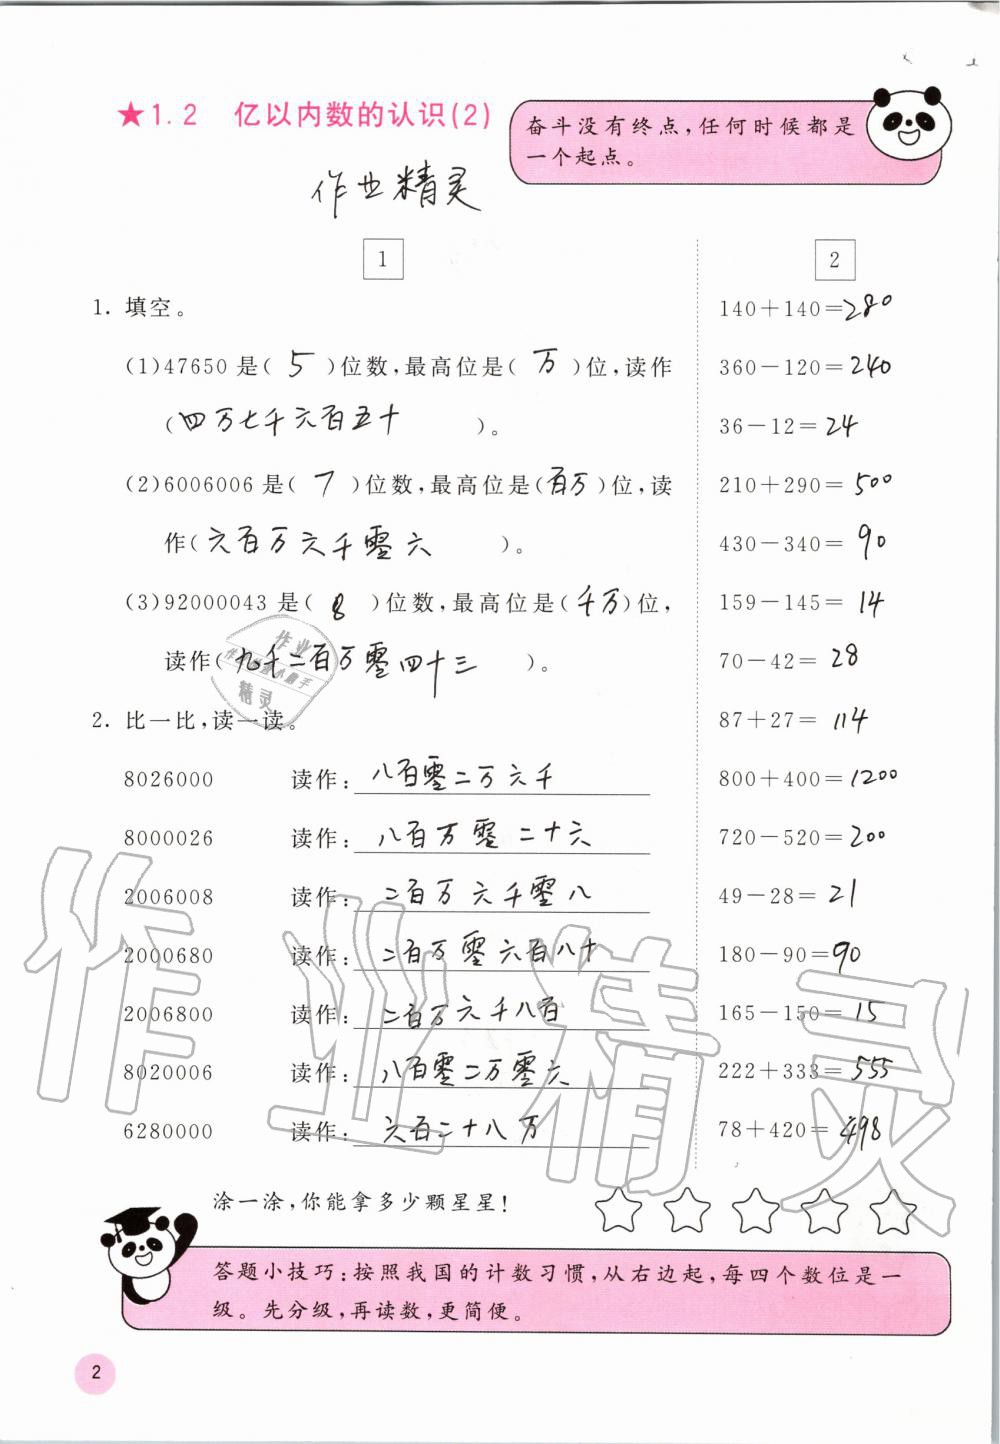 ★1.2 亿以内数的认识(2)
奋斗没有终点,任何时候都是
一个起点。
作业精灵
1
1. 填空。
(1)47650是( 5 )位数,最高位是( 万 )位,读作
(四万七千六百五十 )。
(2)6006006是( 7 )位数,最高位是(百万)位,读
作(六百万六千零六 )。
(3)92000043是( 8 )位数,最高位是(千万)位,
读作(九千二百万零四十三 )。
2. 比一比,读一读。
8026000 读作:八百零二万六千
8000026 读作:八百万零二十六
2006008 读作:二百万六千零八
2000680 读作:二百万零六百八十
2006800 读作:二百万六千八百
8020006 读作:八百零二万零六
6280000 读作:六百二十八万
2
140+140=280
360-120=240
36-12=24
210+290=500
430-340=90
159-145=14
70-42=28
87+27=114
800+400=1200
720-520=200
49-28=21
180-90=90
165-150=15
222+333=555
78+420=498
涂一涂,你能拿多少颗星星!
答题小技巧:按照我国的计数习惯,从右边起,每四个数位是一
级。先分级,再读数,更简便。
2
作业精灵
作业
精灵